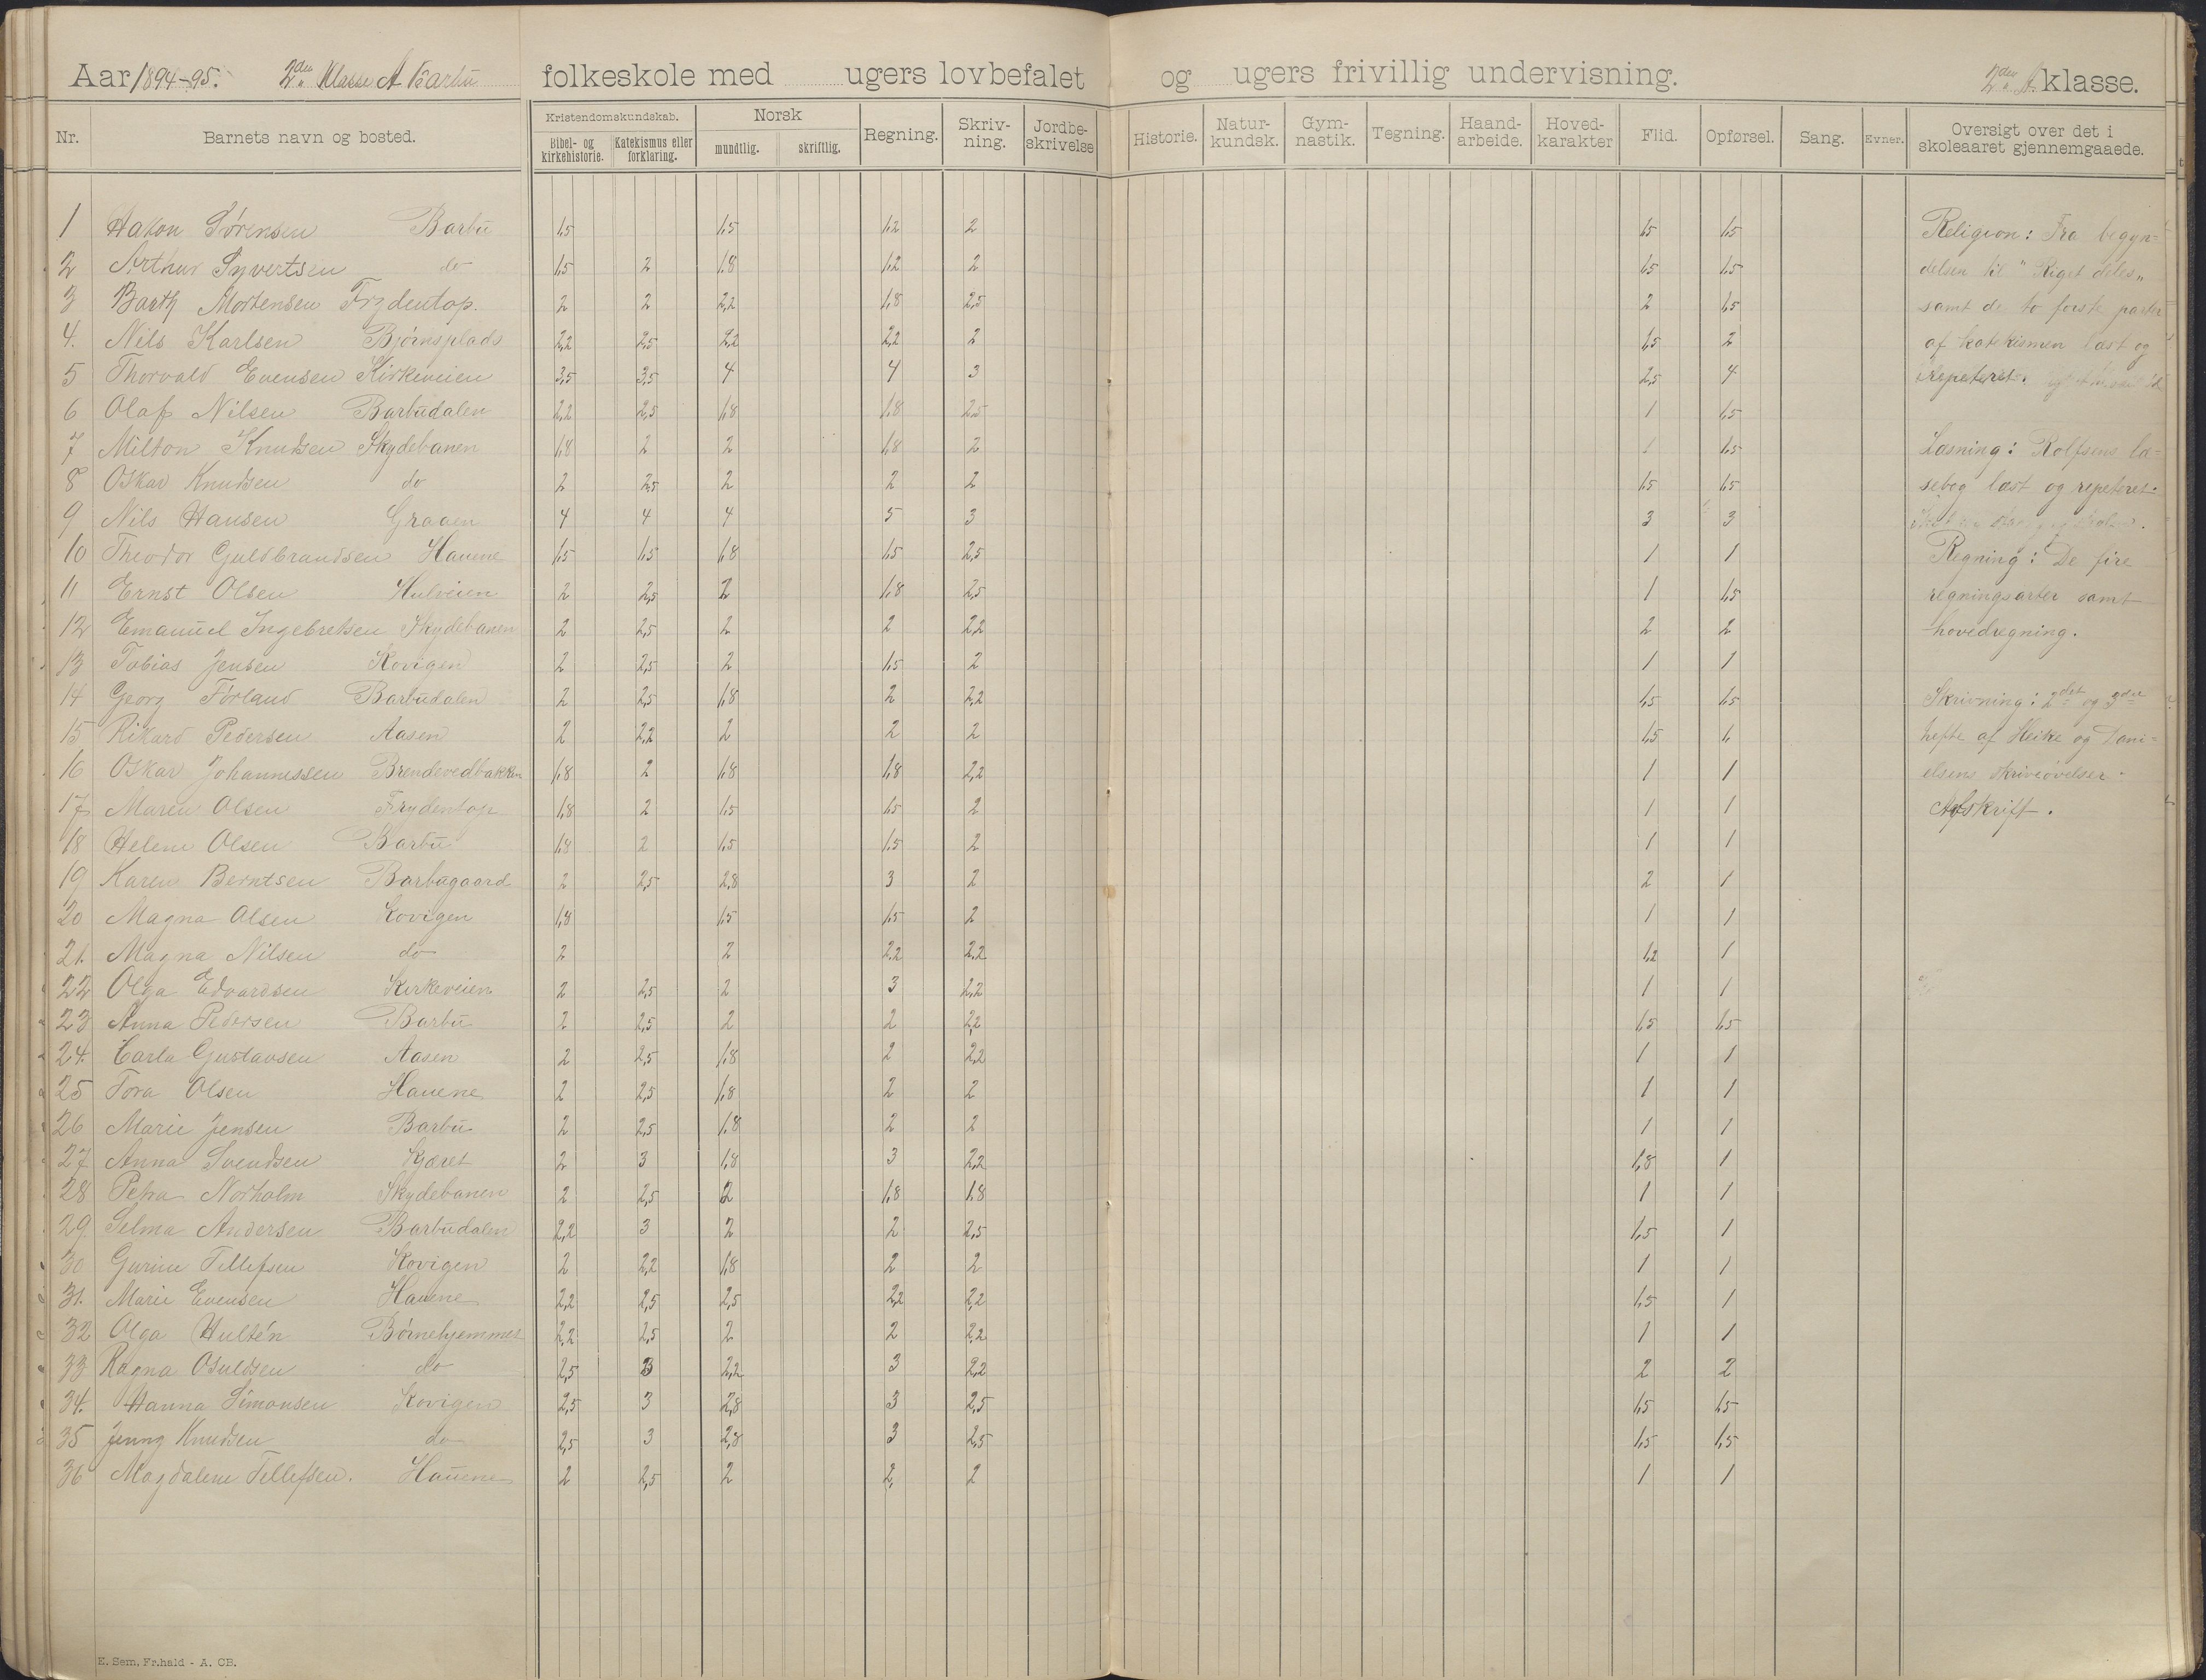 Aar 1894-95. 2den Klasse A Barbu folkeskole med ugers lovbefalet og ugers frivillig undervisning. 2den A. klasse.
Nr. Barnets navn og bosted. Kristendomskundskab. Bibel- og kirkehistorie. Katekismus eller forklaring. Norsk mundtlig. skriftlig. Regning. Skriv-ning. Jordbe-skrivelse Historie. Natur-kundsk. Gym-nastik. Tegning. Haand-arbeide. Hoved-karakter Flid. Opførsel. Sang. Evner. Oversigt over det i skoleaaret gjennemgaaede.
1 Hakon Sørensen Barbu 1,5 1,5 1,2 2 1,5 1,5
2 Arthur Syvertsen do 1,5 2 1,8 1,2 2 1,5 1,5
3 Barth Mortensen Frydentop. 2 2 2,2 1,8 2,5 2 1,5
4. Nils Karlsen Bjørnsplads 2,2 2,5 2,2 2,2 2 1,5 2
5 Thorvald Evensen Kirkeveien 3,5 3,5 4 4 3 2,5 4
6 Olaf Nilsen Barbudalen 2,2 2,5 1,8 1,8 2,5 1 1,5
7 Milton Knudsen Skydebanen 1,8 2 2 1,8 2 1 1,5
8 Oskar Knudsen do 2 2,5 2 2 2 1,5 1,5
9 Nils Hansen Graaen 4 4 4 5 3 3 3
10 Theodor Guldbrandsen Hauene 1,5 1,5 1,8 1,5 2,5 1 1
11 Ernst Olsen Hulveien 2 2,5 2 1,8 2,5 1 1,5
12 Emanuel Ingebretsen Skydebanen 2 2,5 2 2 2,2 2 2
13 Tobias Jensen Kovigen 2 2,5 2 1,5 2 1 1
14 Georg Førland Barbudalen 2 2,5 1,8 2 2,2 1,5 1,5
15 Rikard Pedersen Aasen 2 2,2 2 2 2 1,5 1,
16 Oskar Johannessen Brendevedbakken 1,8 2 1,8 1,8 2,2 1 1
17 Maren Olsen Frydentop 1,8 2 1,5 1,5 2 1 1
18 Helene Olsen Barbu 1,8 2 1,5 1,5 2 1 1
19 Karen Berntsen Barbugaard 2 2,5 2,8 3 2 2 1
20 Magna Olsen Kovigen 1,8 1,5 1,5 2 1 1
21. Magna Nilsen do 2 2 2,2 2,2 1,2 1
22 Olga Edvardsen Kirkeveien 2 2,5 2 3 2,2 1 1
23 Anna Pedersen Barbu 2 2,5 2 2 2,2 1,5 1,5
24. Carla Gustavsen Aasen 2 2,5 1,8 2 2,2 1 1
25 Tora Olsen Hauene 2 2,5 1,8 2 2 1 1
26 Marie Jensen Barbu 2 2,5 1,8 2 2 1 1
27 Anna Svendsen Kjæret 2 3 1,8 3 2,2 1,8 1
28 Petra Norholm Skydebanen 2 2,5 2 1,8 1,8 1 1
29. Selma Andersen Barbudalen 2,2 3 2 2 2,5 1,5 1
30 Gurine Tellefsen Kovigen 2 2,2 1,8 2 2 1 1
31. Marie Evensen Hauene 2,2 2,5 2,5 2,2 2,2 1,5 1
32 Olga Hultén Børnehjemmet 2,2 2,5 2 2 2,2 1 1
33 Ragna Osuldsen do 2,5 3 2,2 3 2,2 2 2
34. Hanna Simonsen Kovigen 2,5 3 2,8 3 2,5 1,5 1,5
35 Jenny Knudsen do 2,5 3 2,8 3 2,5 1,5 1,5
36 Magdalene Tellefsen. Hauene 2 2,5 2 2, 2 1 1
Religion: Fra begyn=
delsen til "Riget deles"
samt de to første parter
af katekismen læst og
repeteret.
Læsning: Rolfsens læ=
sebog læst og repeteret.
Regning: De fire
regningsarter samt
hovedregning.
Skrivning: 2det og 3die
hefte af Heike og Dani=
elsens skriveøvelser.
Afskrift.
E. Sem, Fr.hald - A. CB.